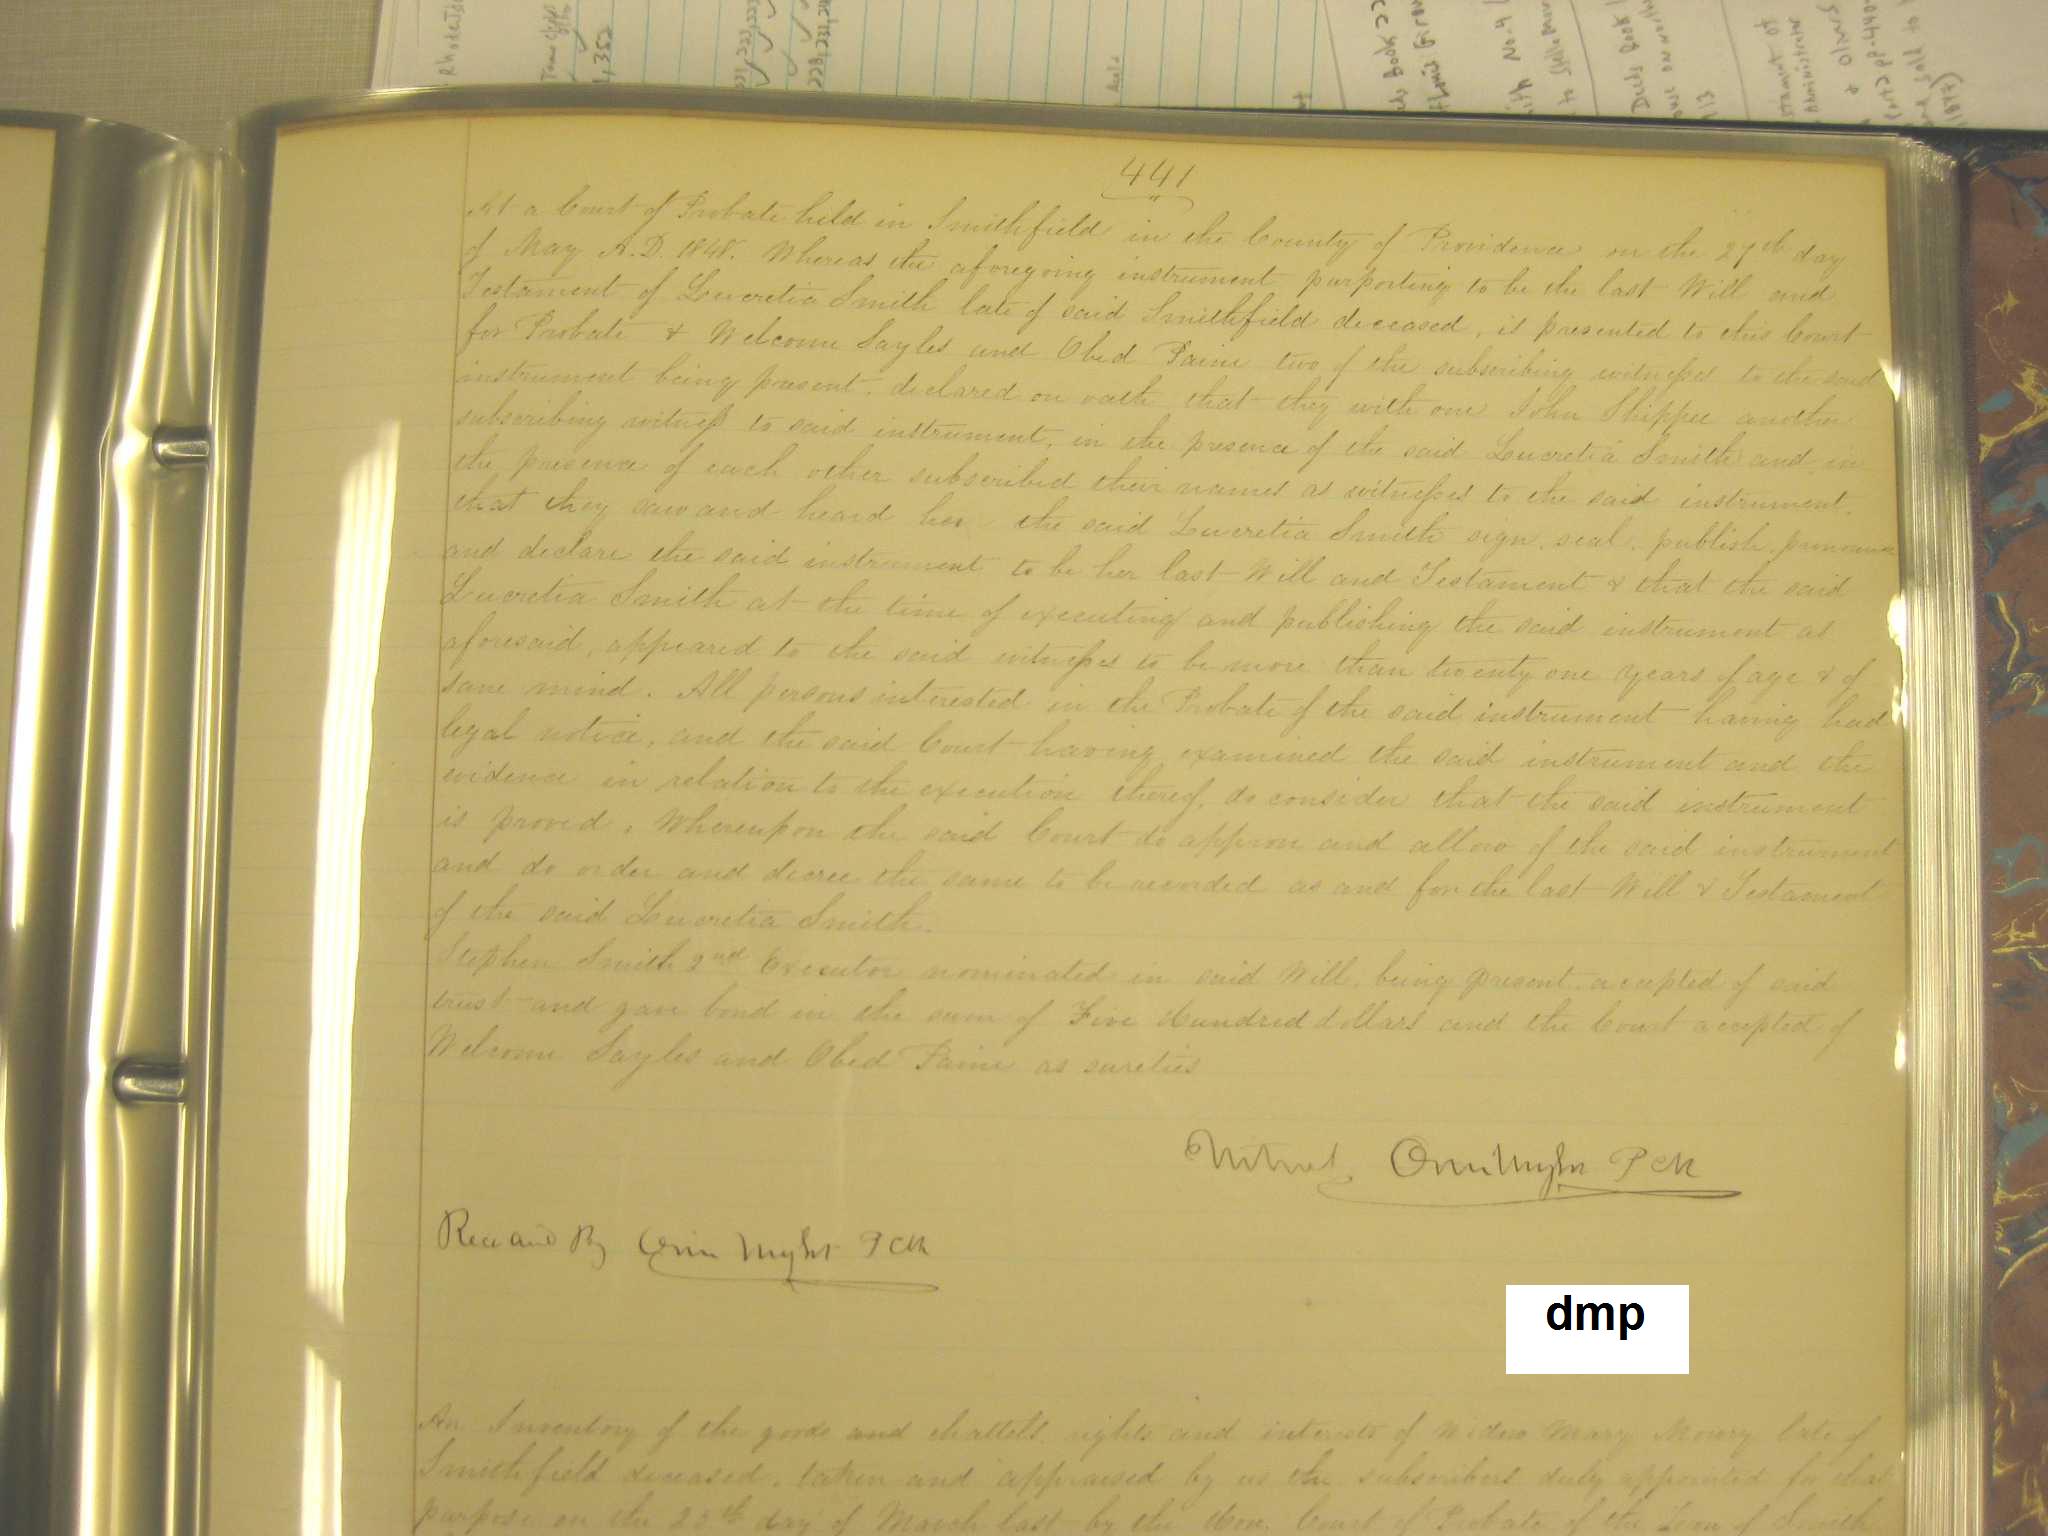 441
At a Court of Probate held in Smithfield in the County of Providence on the 27th day
of May A.D. 1848. Whereas the aforegoing instrument purporting to be the last Will and
Testament of Lucretia Smith late of said Smithfield deceased, is presented to this Court
for Probate & Welcome Sayles and Obed Paine two of the subscribing witnesses to the said
instrument being present, declared on oath that they with one John Shippee another
subscribing witness to said instrument, in the presence of the said Lucretia Smith and in
the presence of each other subscribed their names as witnesses to the said instrument,
that they saw and heard her the said Lucretia Smith sign, seal, publish, pronounce
and declare the said instrument to be her last Will and Testament & that the said
Lucretia Smith at the time of executing and publishing the said instrument as
aforesaid, appeared to the said witnesses to be more than twenty one years of age & of
sane mind. All persons interested in the Probate of the said instrument having had
legal notice, and the said Court having examined the said instrument and the
evidence in relation to the execution thereof, do consider that the said instrument
is proved, Whereupon the said Court do approve and allow of the said instrument
and do order and decree the same to be recorded as and for the last Will & Testament
of the said Lucretia Smith.
Stephen Smith 2nd Executor nominated in said Will, being present, accepted of said
trust and gave bond in the sum of Five Hundred dollars and the Court accepted of
Welcome Sayles and Obed Paine as sureties
Witness, Orin Wright P Clk
Recorded By Orin Wright P Clk
dmp
An Inventory of the goods and chattels, rights and interests of Widow Mary Mowry late of
Smithfield deceased, taken and appraised by us the subscribers duly appointed for that
purpose on the 25th day of March last by the Hon. Court of Probate of the Town of Smith